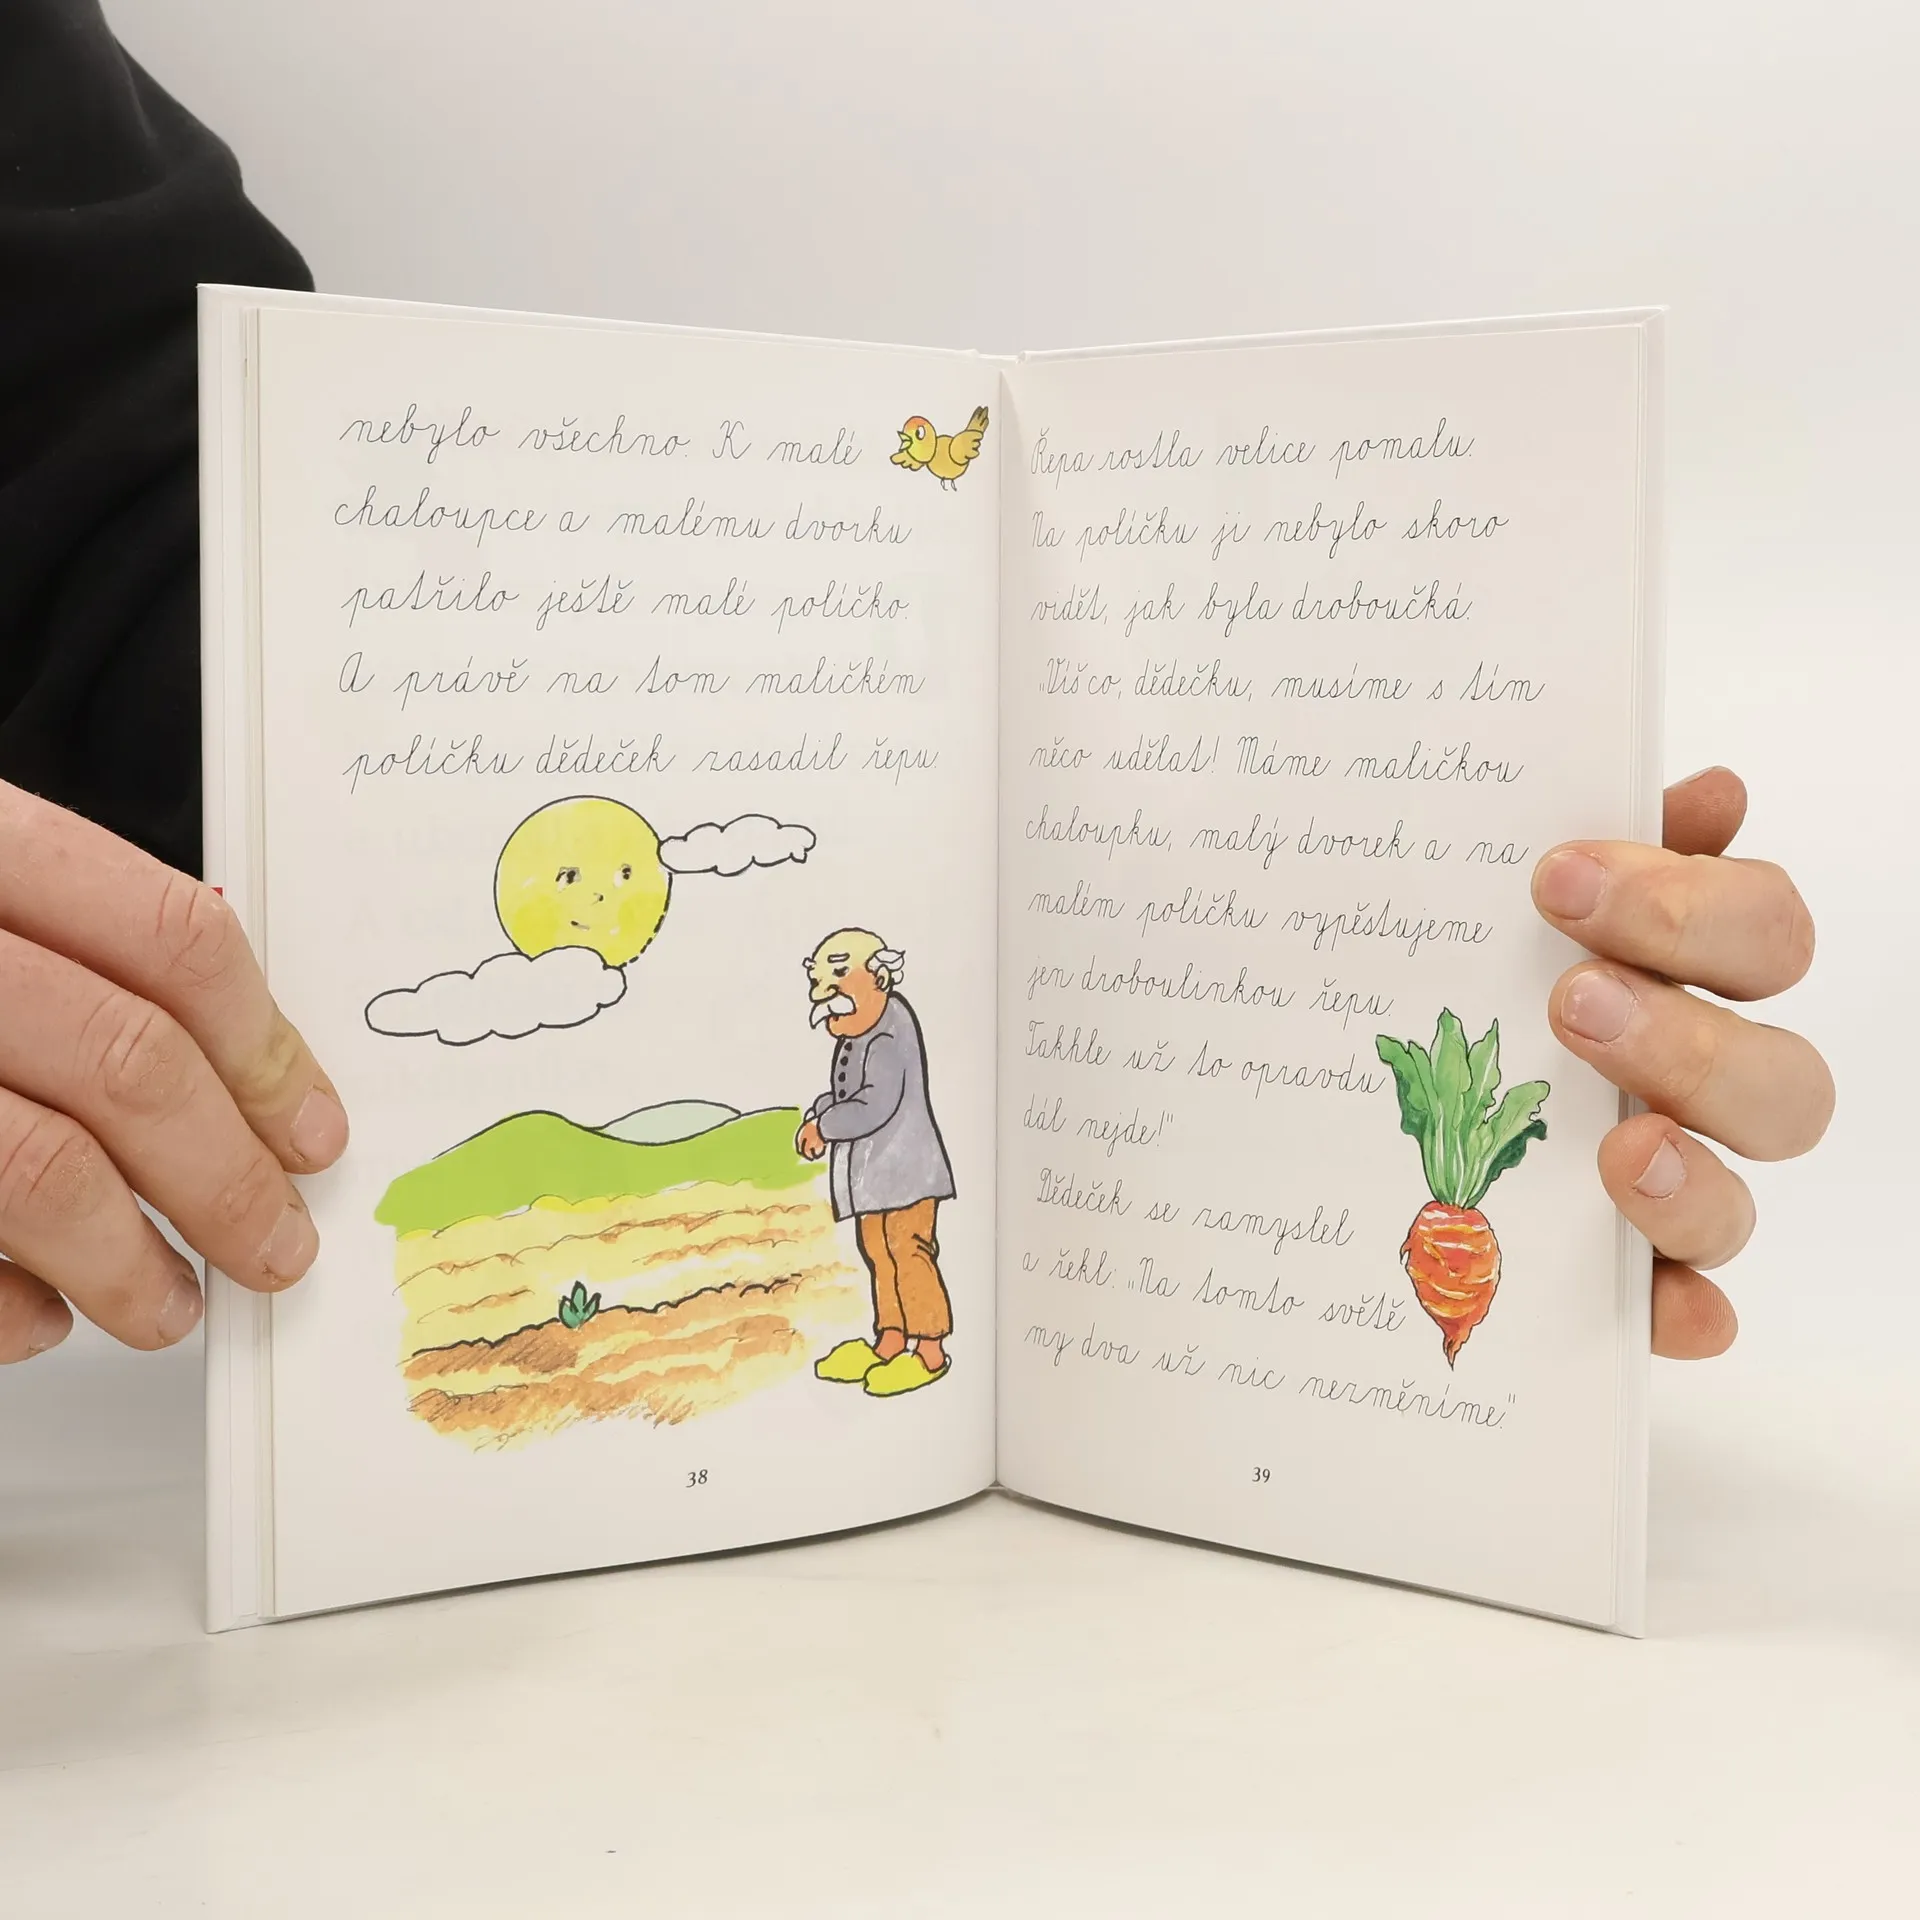 nebylo všechno. K malé
chaloupce a malému dvorku
patřilo ještě malé políčko.
A právě na tom maličkém
políčku dědeček zasadil řepu.
38
Řepa rostla velice pomalu.
Na políčku ji nebylo skoro
vidět, jak byla droboučká.
„Víš co, dědečku, musíme s tím
něco udělat! Máme maličkou
chaloupku, malý dvorek a na
malém políčku vypěstujeme
jen droboulinkou řepu.
Takhle už to opravdu
dál nejde!"
Dědeček se zamyslel
a řekl: „Na tomto světě
my dva už nic nezměníme."
39